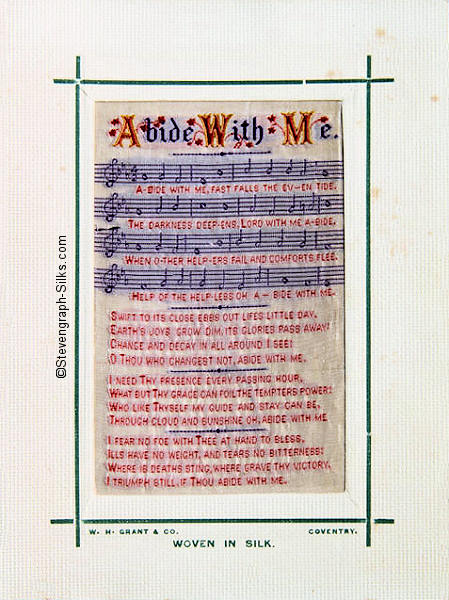 Abide With Me.
A-BIDE WITH ME, FAST FALLS THE EV-EN TIDE.
THE DARKNESS DEEP-ENS, LORD WITH ME A-BIDE.
WHEN O-THER HELP-ERS FAIL AND COMFORTS FLEE,
HELP OF THE HELP-LESS OH A- BIDE WITH ME.
SWIFT TO ITS CLOSE EBBS OUT LIFES LITTLE DAY,
EARTH'S JOYS GROW DIM, ITS GLORIES PASS AWAY:
CHANGE AND DECAY IN ALL AROUND I SEE:
O THOU WHO CHANGEST NOT, ABIDE WITH ME.
I NEED THY PRESENCE EVERY PASSING HOUR,
WHAT BUT THY GRACE CAN FOIL THE TEMPTERS POWER:
WHO LIKE THYSELF MY GUIDE AND STAY CAN BE,
THROUGH CLOUD AND SUNSHINE OH, ABIDE WITH ME
I FEAR NO FOE WITH THEE AT HAND TO BLESS,
ILLS HAVE NO WEIGHT, AND TEARS NO BITTERNESS:
WHERE IS DEATHS STING, WHERE GRAVE THY VICTORY,
I TRIUMPH STILL, IF THOU ABIDE WITH ME.
W. H. GRANT & CO. COVENTRY.
WOVEN IN SILK.
©Stevengraph-Silks.com